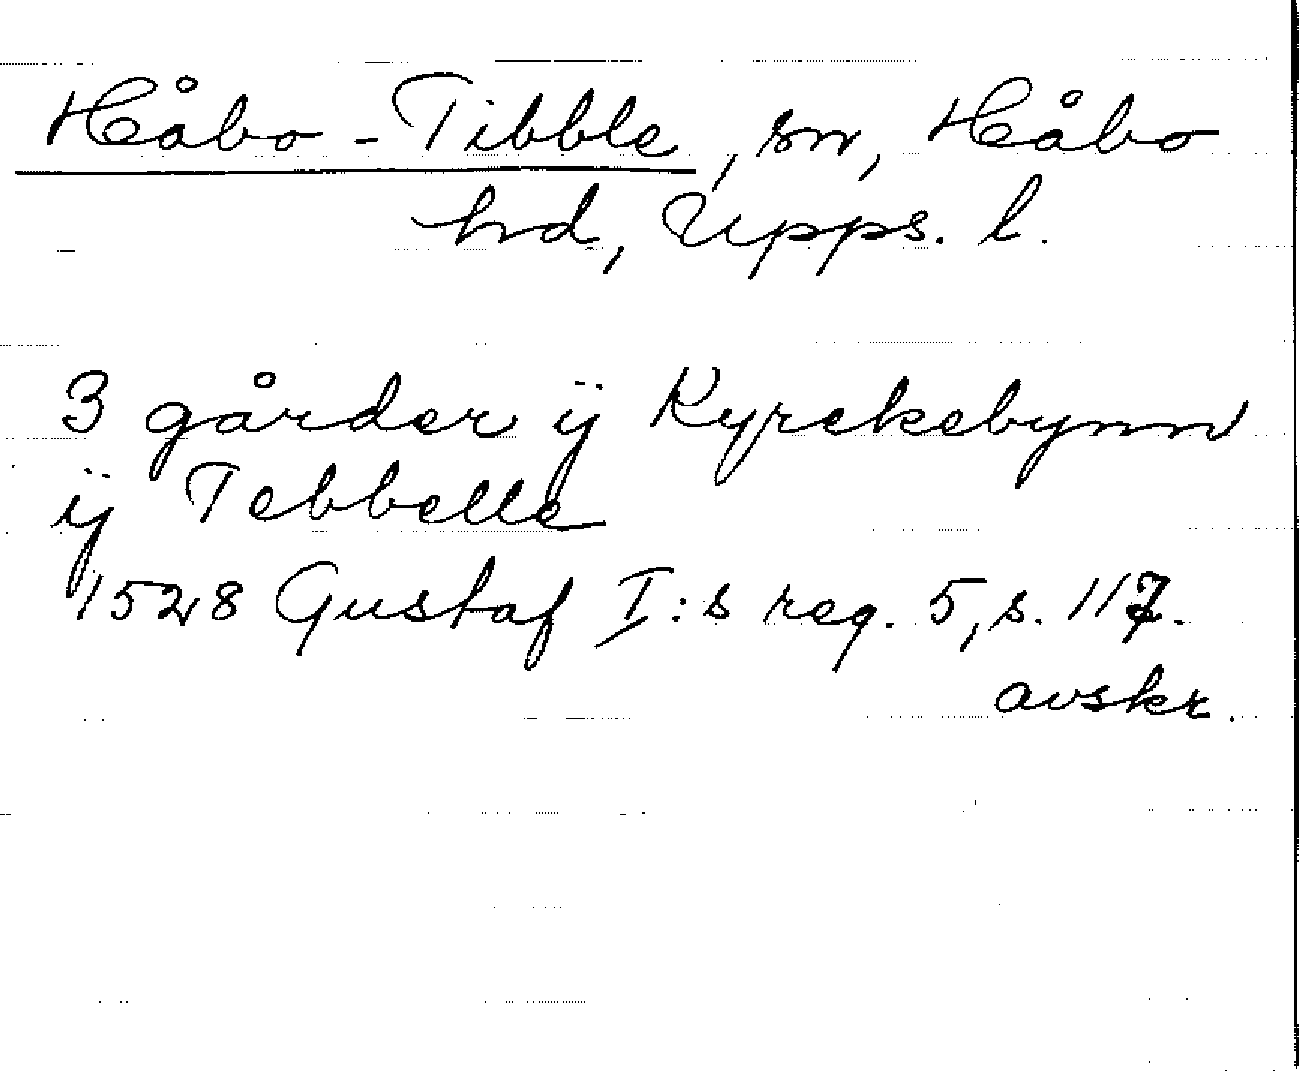 Håbo-Tibble, sn, Håbo
hd, Upps. l.
3 gårder ÿ Kyrckebynn
ÿ Tebbelle
1528 Gustaf I:s reg. 5, s. 117.
avskr.